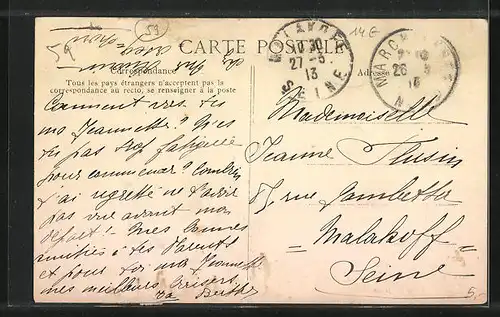 59
53
14 E
CARTE POSTALE
MALAKOFF
10 30
27-5
13
SEINE
26 - 5
13
Correspondance
Adresse
Tous les pays étrangers n'acceptent pas la
correspondance au recto, se renseigner à la poste
Comment vas tu
ma Jeannette? N'es
tu pas trop fatiguée
pour commencer? Combien
j'ai regretté ne t'avoir
pas vue avant mon
départ! Mes bonnes
amitiés à tes Parents
et pour toi ma Jeannette
mes meilleurs baisers
ta Berthe
Mademoiselle
Jeanne
rue Gambetta
= Malakoff =
Seine